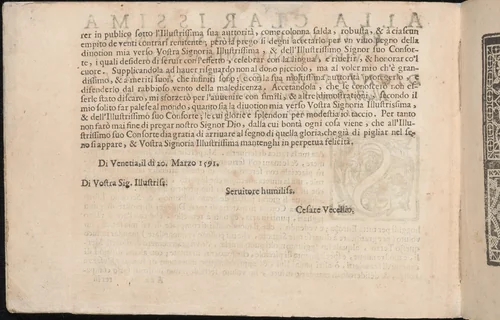 rer in publico sotto l'Illustrissima sua autorità, come colonna salda, robusta, & à ciascun
empito de venti contrari renitente, però la prego si degni accettarlo per un viuo pegno della
diuotion mia verso Vostra Signoria Illustrissima, & dell'Illustrissimo Signor suo Consor-
te, i quali desiderò di seruir con l'effetto, celebrar con la lingua, e riuerir, & honorar co'l
cuore. Supplicandola ad hauer risguardo non al dono picciolo, ma al voler mio ch'è gran-
dissimo, & a' meriti suoi, che infiniti sono; e con la sua moltissima autorità protegerlo, e
difenderlo dal rabbioso vento della maledicenza. Accetandola, che se conoscerò non es-
serle stato discaro, mi sforzerò per l'auuenire con simili, & altre dimostrationi, secondo il
mio solito far palese al mondo, quanto sia la diuotion mia verso Vostra Signoria Illustrissima,
& dell'Illustrissimo suo Consorte; le cui glorie e splendori per modestia io taccio. Per tanto
non farò mai fine di pregar nostro Signor Dio, dalla cui bontà ogni cosa viene, che all'Illu-
strissimo suo Consorte dia gratia di arriuare al segno di quella gloria, che già di pigliar nel se-
no si appare, & Vostra Signoria Illustrissima mantenghi in perpetua felicità.
Di Venetia, il dì 20. Marzo 1591.
Di Vostra Sig. Illustriss.
Seruitore humiliss.
Cesare Vecellio.